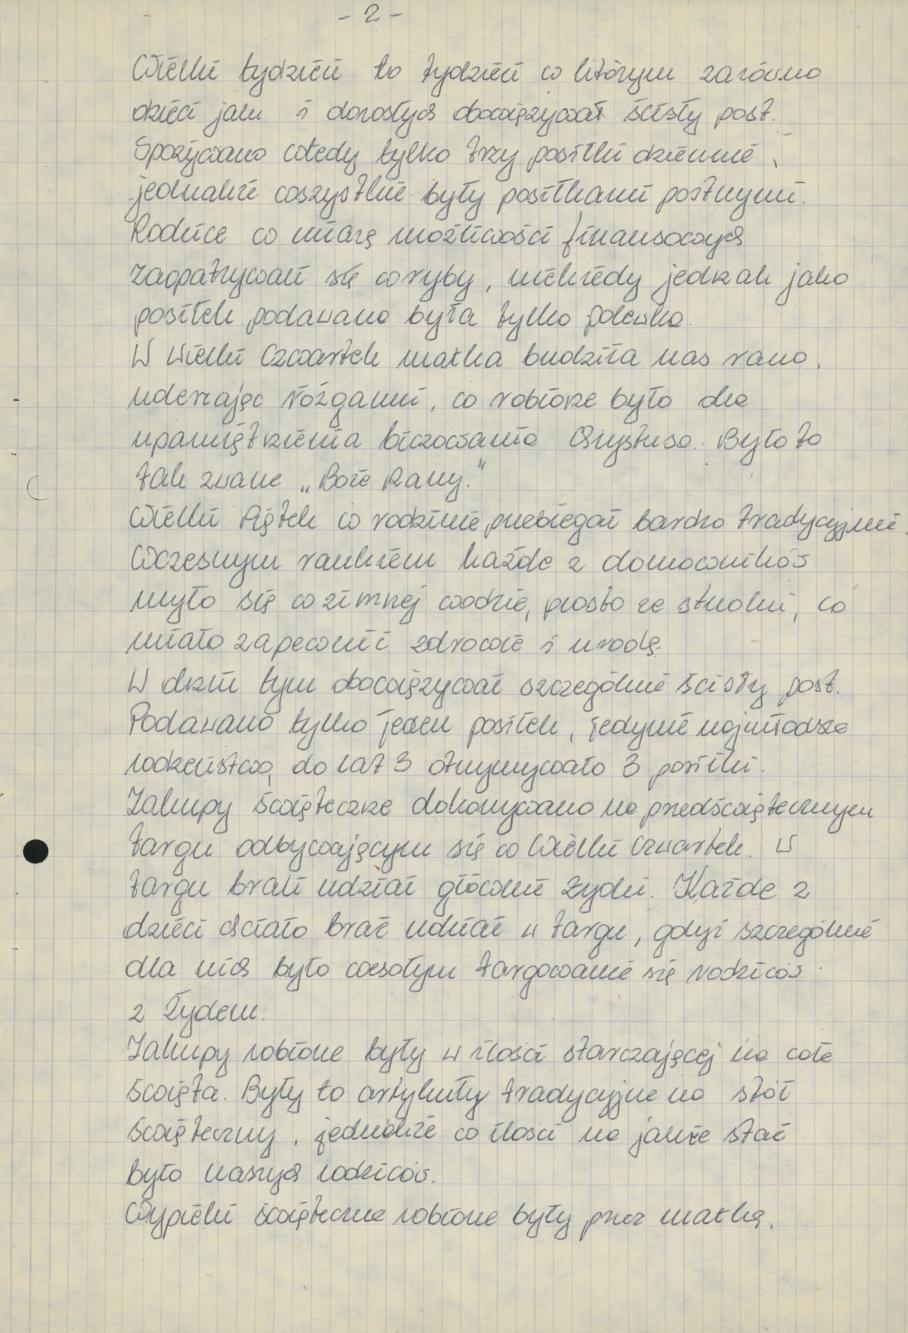 - 2 -
Wielki tydzień to tydzień w którym zarówno
dzieci jak i dorosłych obowiązywał ścisły post.
Spożywano wtedy tylko trzy posiłki dzienne,
jednakże wszystkie były posiłkami postnymi.
Rodzice w miarę możliwości finansowych
zaopatrywali się w ryby, niekiedy jednak jako
posiłek podawana była tylko polewka.
W Wielki Czwartek matka budziła nas rano,
uderzając rózgami, co robione było dla
upamiętnienia biczowania Chrystusa. Było to
tak zwane „Boże Rany."
Wielki Piątek w rodzinie przebiegał bardzo tradycyjnie.
Wczesnym rankiem każde z domowników
myło się w zimnej wodzie, prosto ze studni, co
miało zapewnić zdrowie i urodę.
W dniu tym obowiązywał szczególnie ścisły post.
Podawano tylko jeden posiłek, jedynie najmłodsze
rodzeństwo, do lat 3 otrzymywało 3 posiłki.
Zakupy świąteczne dokonywano na przedświątecznym
targu odbywającym się w Wielki Czwartek. W
targu brali udział głównie Żydzi. Każde z
dzieci chciało brać udział w targu, gdyż szczególnie
dla nich było wesołym targowanie się rodziców
z Żydem.
Zakupy robione były w ilości starczającej na całe
święta. Były to artykuły tradycyjne na stół
świąteczny, jednakże w ilości na jakie stać
było naszych rodziców.
Wypieki świąteczne robione były przez matkę.